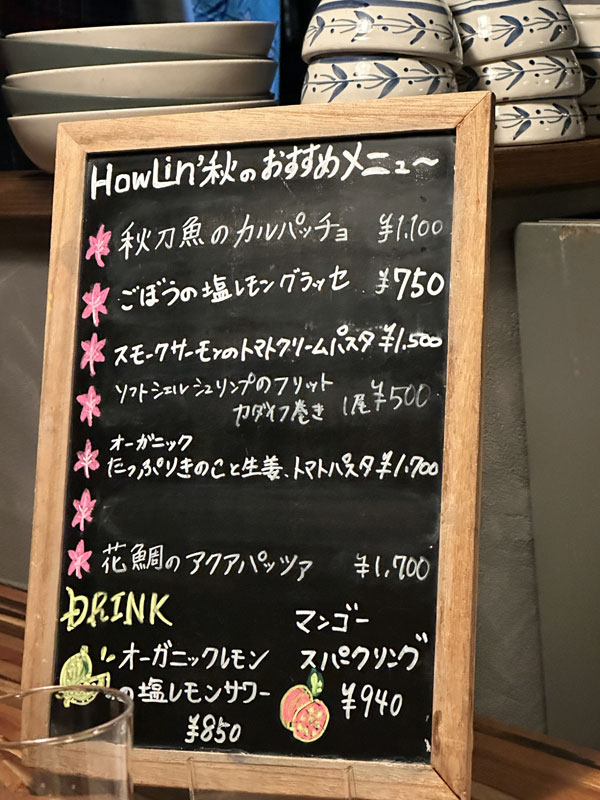 HowLin'秋のおすすめメニュ〜
秋刀魚のカルパッチョ ¥1.100
ごぼうの塩レモングラッセ ¥750
スモークサーモンのトマトクリームパスタ ¥1.500
ソフトシェルシュリンプのフリット
カダイフ巻き 1尾 ¥500
オーガニック
たっぷりきのこと生姜、トマトパスタ ¥1.700
花鯛のアクアパッツァ ¥1,700
DRINK
オーガニックレモン
の塩レモンサワー
¥850
マンゴー
スパークリング
¥940